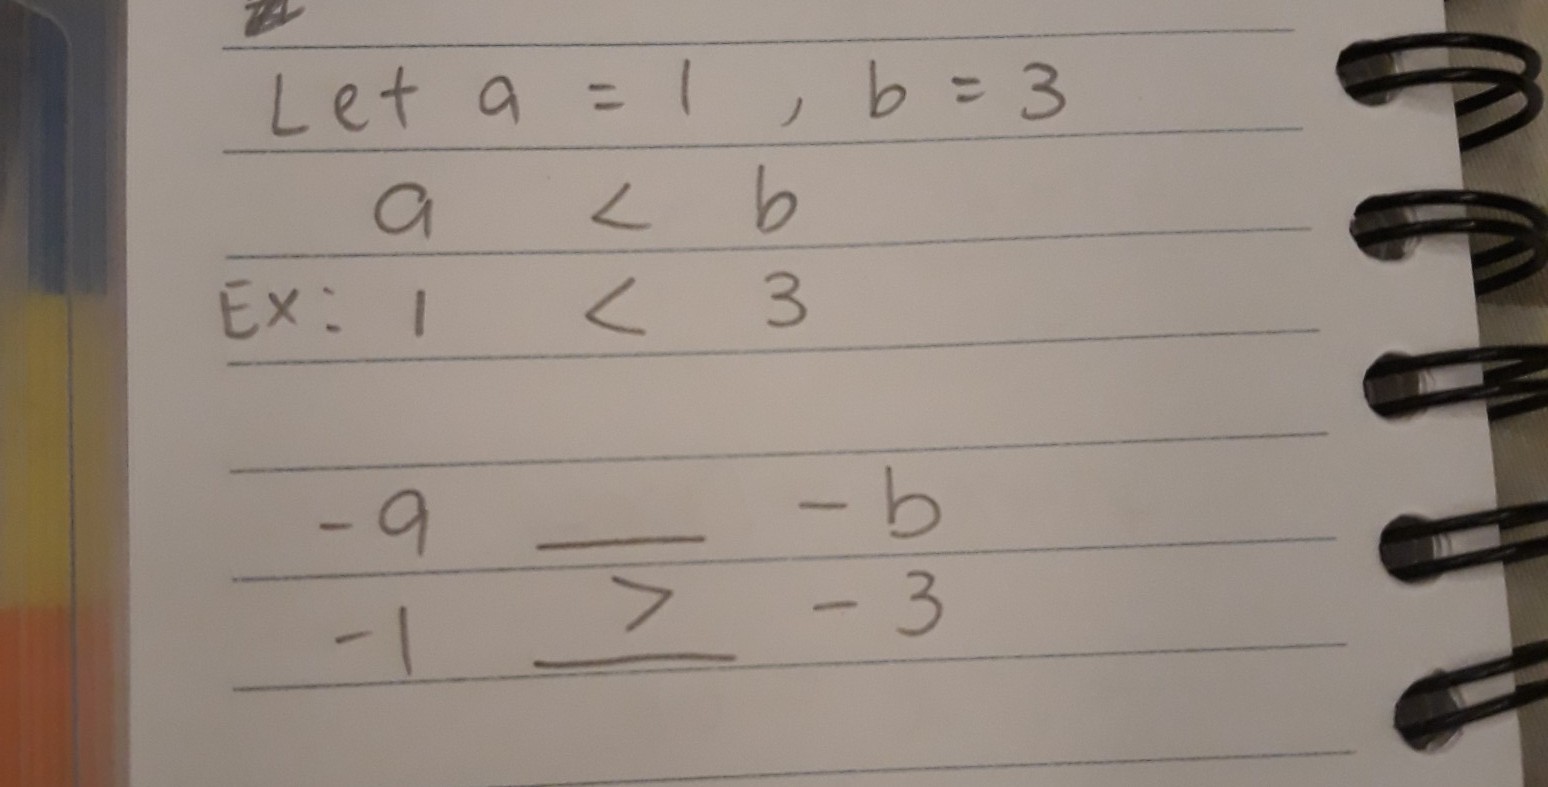 Let a = 1 , b = 3
a < b
Ex: 1 < 3
-a ___ - b
-1 > - 3